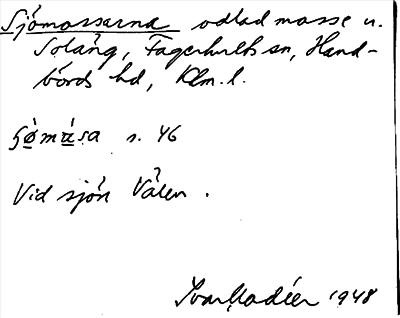 Sjömossarna odlad mosse u.
Soläng, Fagerhults sn, Hand-
börds hd, Klm. l.
Sjömåsa s. 46
Vid sjön Välen.
Ivar Modéer 1948